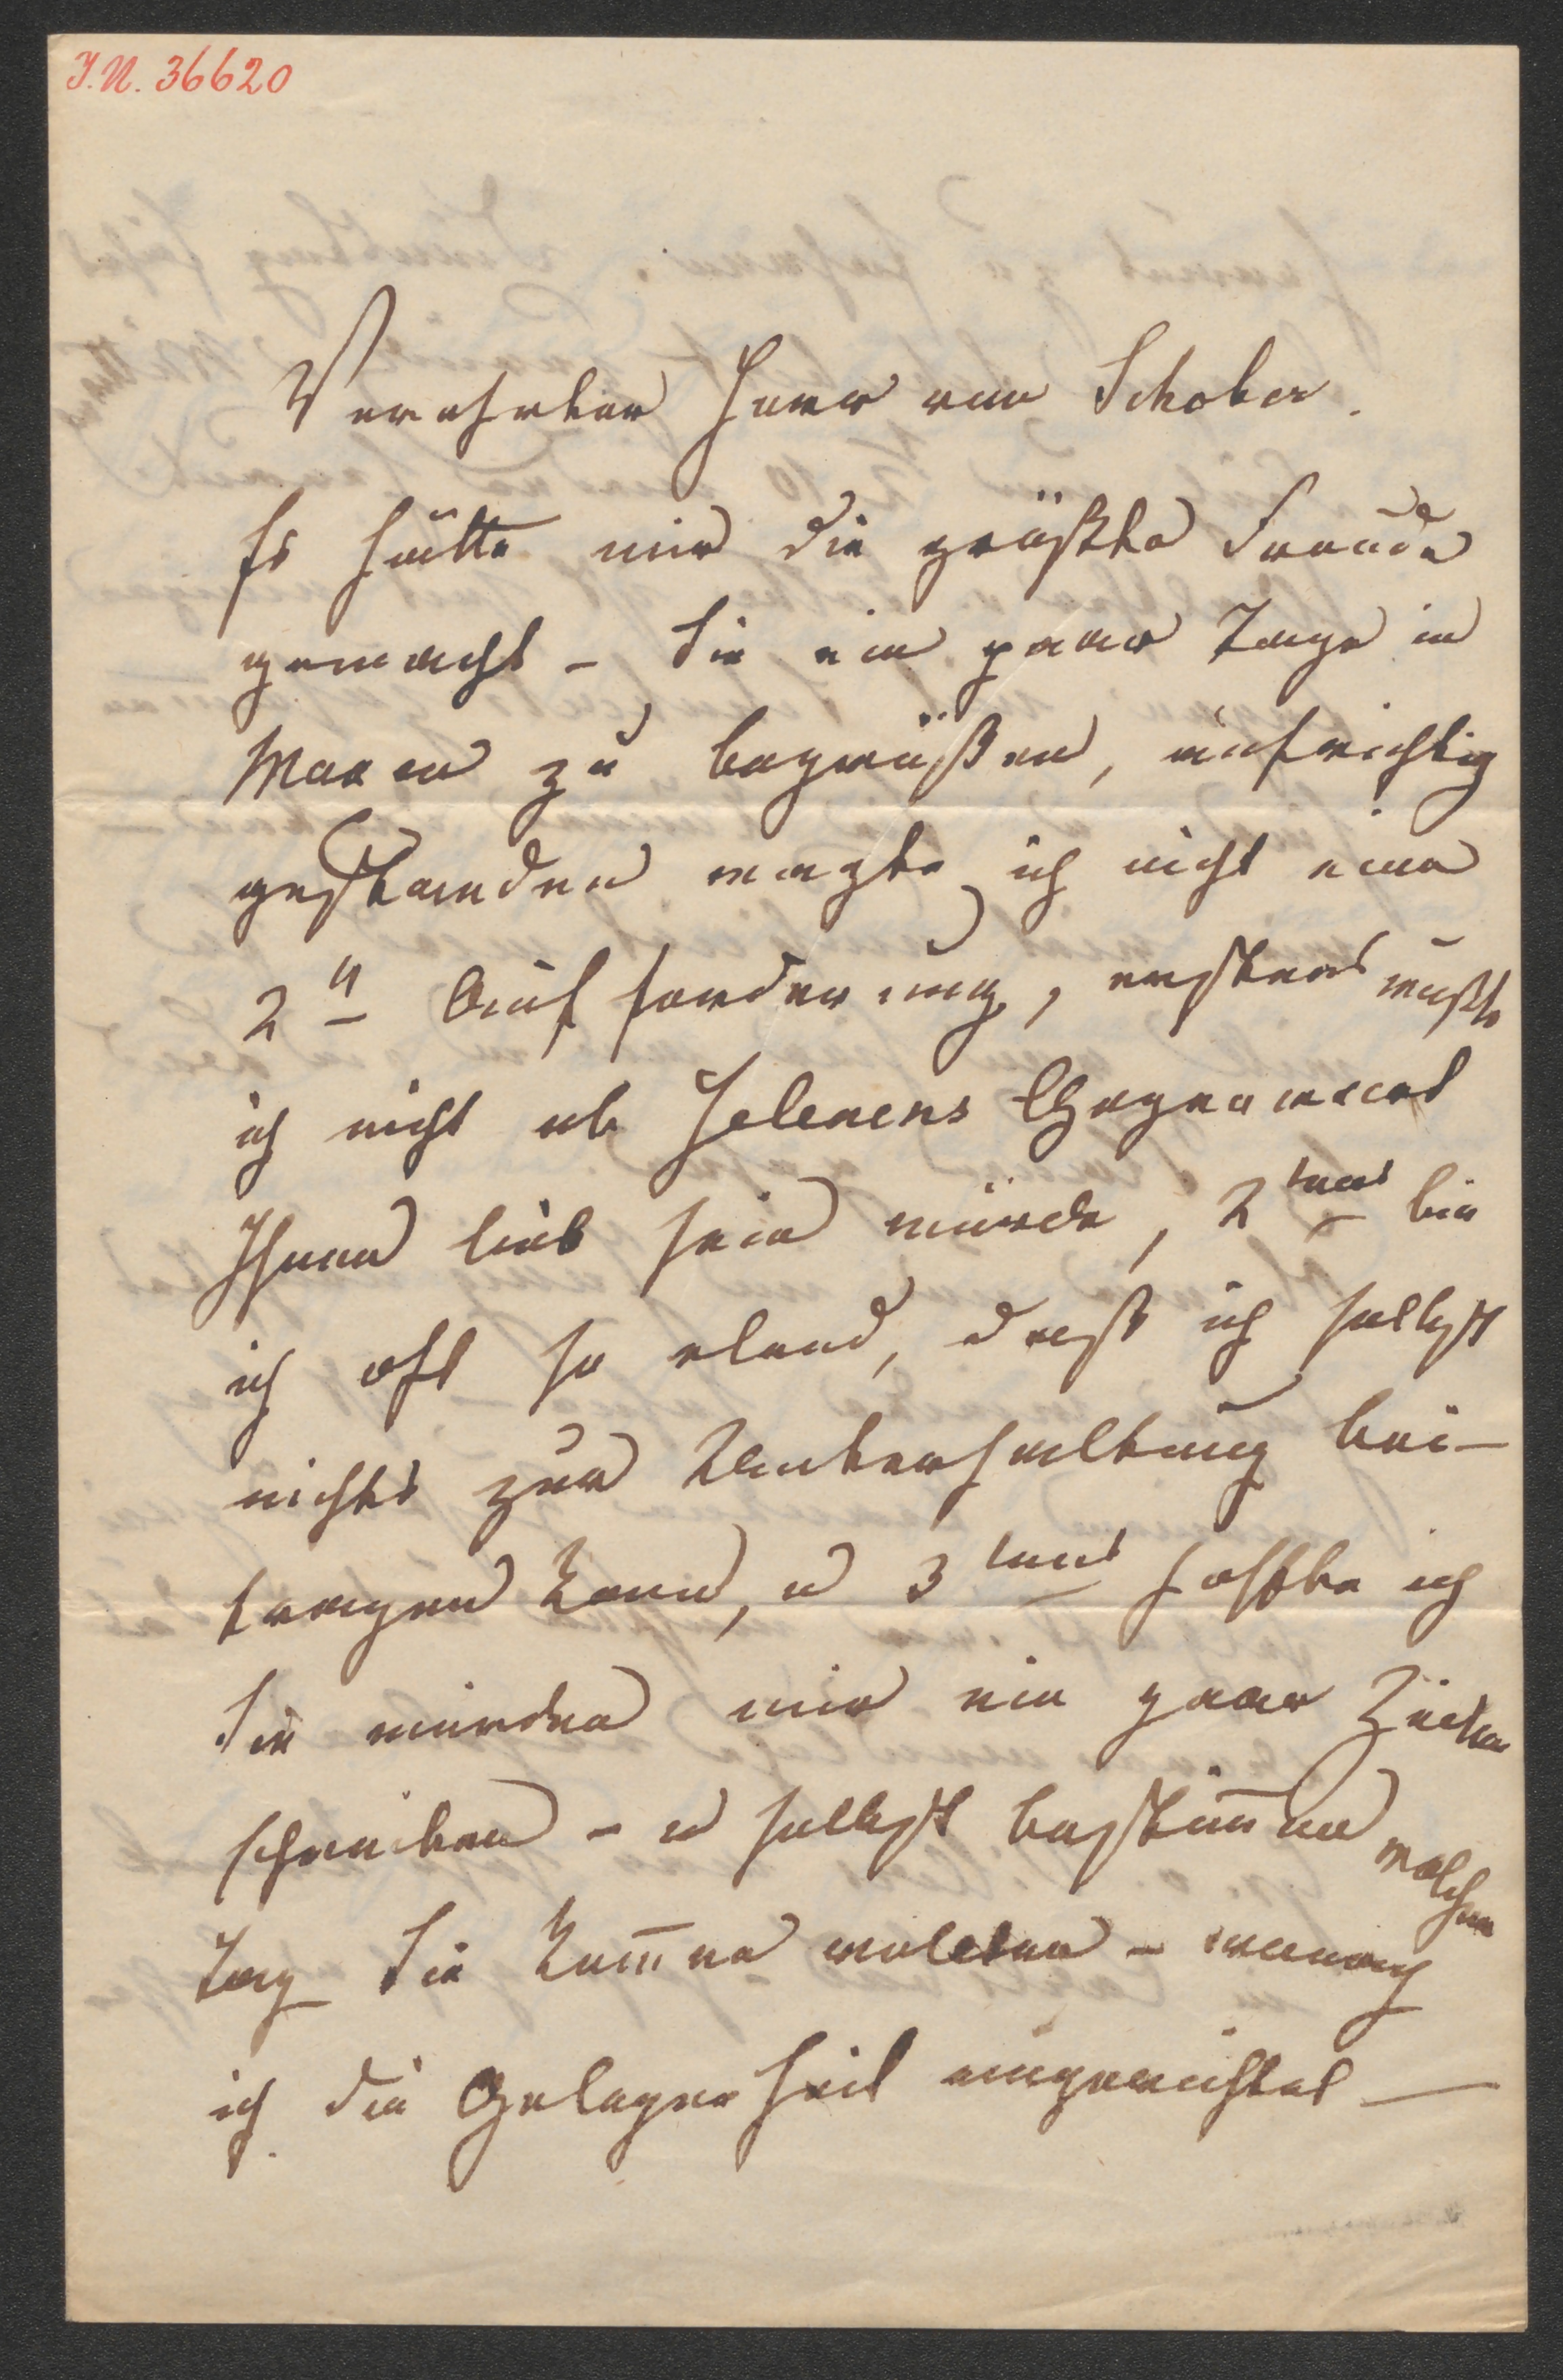 I.N. 36620
Verehrter Herr von Schober.
Es hätte mir die größte Freude
gemacht – Sie ein paar Tage in
Maxen zu begrüßen, aufrichtig
gestanden wagte ich nicht eine
2te Aufforderung, erstens wußte
ich nicht ob Helenens Gegenwart
Ihnen lieb sein würde, 2tens bin
ich oft so elend, daß ich selbst
nichts zur Unterhaltung bei-
tragen kann, u 3tens hoffte ich
Sie würden mir ein paar Zeilen
schreiben – u selbst bestimen welchen
Tag Sie komen wollten –
ich die Gelegenheit eingerichtet –